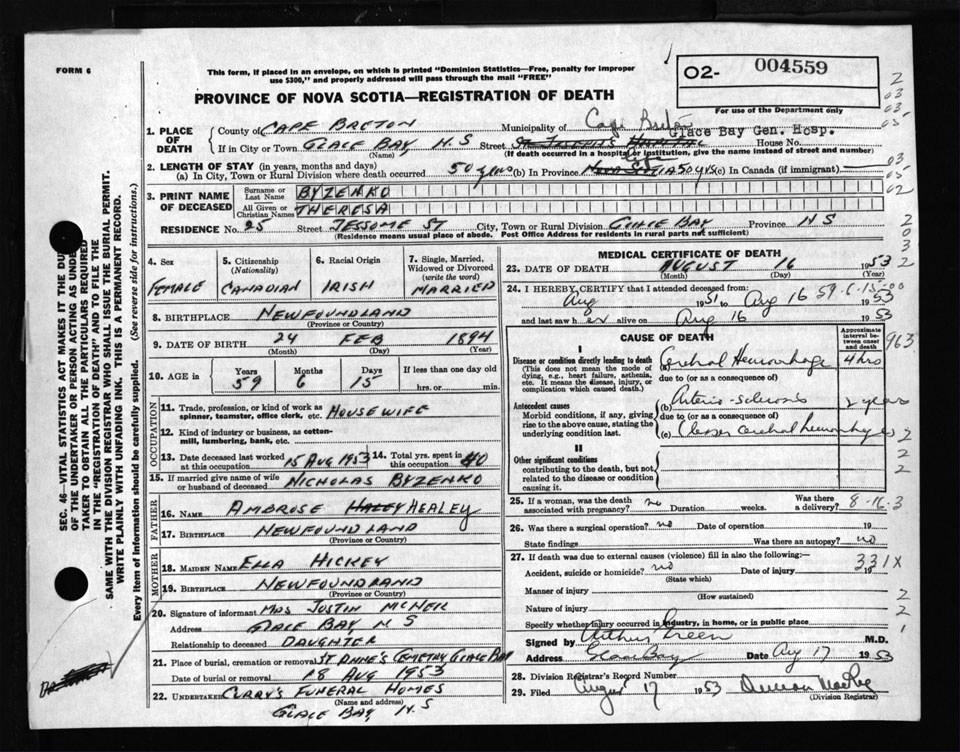 FORM 6
This form, if placed in an envelope, on which is printed "Dominion Statistics—Free, penalty for improper
use $300," and properly addressed will pass through the mail "FREE"
O2- 004559
For use of the Department only
PROVINCE OF NOVA SCOTIA—REGISTRATION OF DEATH
1. PLACE OF DEATH
County of CAPE BRETON Municipality of Cape Breton
If in City or Town GLACE BAY N.S Street ST JOSEPHS HOSPITAL Glace Bay Gen. Hosp. House No.
(Name) (If death occurred in a hospital or institution, give the name instead of street and number)
2. LENGTH OF STAY (in years, months and days)
(a) In City, Town or Rural Division where death occurred 50 years (b) In Province NOVA SCOTIA 50 yrs (c) In Canada (if immigrant)
3. PRINT NAME OF DECEASED
Surname or Last Name BYZENKO
All Given or Christian Names THERESA
RESIDENCE No. 25 Street JESSOME ST City, Town or Rural Division GLACE BAY Province NS
(Residence means usual place of abode. Post Office Address for residents in rural parts not sufficient)
4. Sex FEMALE
5. Citizenship (Nationality) CANADIAN
6. Racial Origin IRISH
7. Single, Married, Widowed or Divorced (write the word) MARRIED
8. BIRTHPLACE NEWFOUNDLAND
(Province or Country)
9. DATE OF BIRTH 24 FEB 1894
(Month) (Day) (Year)
10. AGE in Years 59 Months 6 Days 15 If less than one day old
hrs. or min.
OCCUPATION
11. Trade, profession, or kind of work as spinner, teamster, office clerk, etc. HOUSEWIFE
12. Kind of industry or business, as cotton-mill, lumbering, bank, etc.
13. Date deceased last worked at this occupation 15 AUG 1953 14. Total yrs. spent in this occupation 40
15. If married give name of wife or husband of deceased NICHOLAS BYZENKO
FATHER
16. NAME AMBROSE HALEY HEALEY
17. BIRTHPLACE NEWFOUNDLAND
(Province or Country)
MOTHER
18. MAIDEN NAME ELLA HICKEY
19. BIRTHPLACE NEWFOUNDLAND
(Province or Country)
20. Signature of informant MRS JUSTIN MCNEIL
Address GLACE BAY N S
Relationship to deceased DAUGHTER
21. Place of burial, cremation or removal ST ANNE'S CEMETRY GLACE BAY
Date of burial or removal 18 AUG 1953
22. UNDERTAKER CURRY'S FUNERAL HOMES
(Name and address)
GLACE BAY N.S
MEDICAL CERTIFICATE OF DEATH
23. DATE OF DEATH AUGUST 16 1953
(Month) (Day) (Year)
24. I HEREBY CERTIFY that I attended deceased from:
Aug 1951 to Aug 16 1953
and last saw her alive on Aug 16 1953
CAUSE OF DEATH
Approximate interval between onset and death
I
Disease or condition directly leading to death
(This does not mean the mode of dying, e.g., heart failure, asthenia, etc. It means the disease, injury, or complication which caused death.)
(a) Cerebral Hemorrhage 4 hrs
due to (or as a consequence of)
Antecedent causes
Morbid conditions, if any, giving rise to the above cause, stating the underlying condition last.
(b) Arterio-sclerosis 2 years
due to (or as a consequence of)
(c) (lesser cerebral hemorrhages
II
Other significant conditions
contributing to the death, but not related to the disease or condition causing it.
25. If a woman, was the death associated with pregnancy? no Duration weeks. Was there a delivery?
8-16-3
26. Was there a surgical operation? no Date of operation 19
State findings Was there an autopsy? no
27. If death was due to external causes (violence) fill in also the following:—
331X
Accident, suicide or homicide? no Date of injury 19
(State which)
Manner of injury
(How sustained)
Nature of injury
Specify whether injury occurred in industry, in home, or in public place
Signed by Arthur Green M.D.
Address Glace Bay Date Aug 17 1953
28. Division Registrar's Record Number
29. Filed August 17 1953 Duncan MacRae
(Division Registrar)
SEC. 46—VITAL STATISTICS ACT MAKES IT THE DUTY
OF THE UNDERTAKER OR PERSON ACTING AS UNDER-
TAKER TO OBTAIN ALL THE PARTICULARS REQUIRED
IN THE "REGISTRATION OF DEATH" AND TO FILE THE
SAME WITH THE DIVISION REGISTRAR WHO SHALL ISSUE THE BURIAL PERMIT.
WRITE PLAINLY WITH UNFADING INK. THIS IS A PERMANENT RECORD.
Every item of information should be carefully supplied. (See reverse side for instructions.)